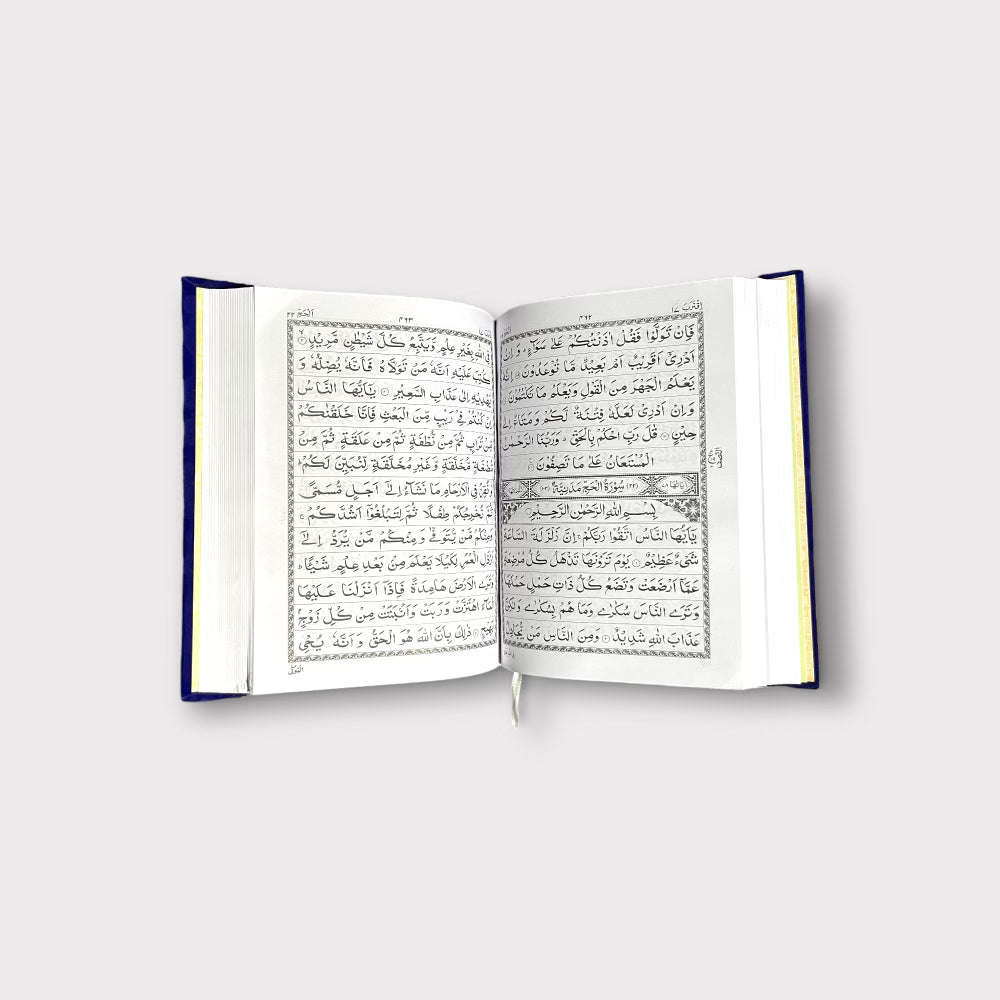 اِقْتَرَبَ ١٧
٤٦٢
فَاِنْ تَوَلَّوْا فَقُلْ اٰذَنْتُكُمْ عَلٰى سَوَآءٍ ؕ وَاِنْ
اَدْرِیْۤ اَقَرِیْبٌ اَمْ بَعِیْدٌ مَّا تُوْعَدُوْنَ ۝ اِنَّهٗ
یَعْلَمُ الْجَهْرَ مِنَ الْقَوْلِ وَیَعْلَمُ مَا تَكْتُمُوْنَ ۝
وَاِنْ اَدْرِیْ لَعَلَّهٗ فِتْنَةٌ لَّكُمْ وَمَتَاعٌ اِلٰى
حِیْنٍ ۝ قٰلَ رَبِّ احْكُمْ بِالْحَقِّ ؕ وَرَبُّنَا الرَّحْمٰنُ
الْمُسْتَعَانُ عَلٰى مَا تَصِفُوْنَ ۝
سُوْرَةُ الْحَجِّ مَدَنِیَّةٌ
بِسْمِ اللّٰهِ الرَّحْمٰنِ الرَّحِیْمِ
یٰۤاَیُّهَا النَّاسُ اتَّقُوْا رَبَّكُمْ ۚ اِنَّ زَلْزَلَةَ السَّاعَةِ
شَیْءٌ عَظِیْمٌ ۝ یَوْمَ تَرَوْنَهَا تَذْهَلُ كُلُّ مُرْضِعَةٍ
عَمَّاۤ اَرْضَعَتْ وَتَضَعُ كُلُّ ذَاتِ حَمْلٍ حَمْلَهَا
وَتَرَى النَّاسَ سُكٰرٰى وَمَا هُمْ بِسُكٰرٰى وَلٰكِنَّ
عَذَابَ اللّٰهِ شَدِیْدٌ ۝ وَمِنَ النَّاسِ مَنْ یُّجَادِلُ
اَلْحَجّ ٢٢
٤٦٣
فِی اللّٰهِ بِغَیْرِ عِلْمٍ وَّیَتَّبِعُ كُلَّ شَیْطٰنٍ مَّرِیْدٍ ۝
كُتِبَ عَلَیْهِ اَنَّهٗ مَنْ تَوَلَّاهُ فَاَنَّهٗ یُضِلُّهٗ وَ
یَهْدِیْهِ اِلٰى عَذَابِ السَّعِیْرِ ۝ یٰۤاَیُّهَا النَّاسُ
اِنْ كُنْتُمْ فِیْ رَیْبٍ مِّنَ الْبَعْثِ فَاِنَّا خَلَقْنٰكُمْ
مِّنْ تُرَابٍ ثُمَّ مِنْ نُّطْفَةٍ ثُمَّ مِنْ عَلَقَةٍ ثُمَّ مِنْ
مُّضْغَةٍ مُّخَلَّقَةٍ وَّغَیْرِ مُخَلَّقَةٍ لِّنُبَیِّنَ لَكُمْ ؕ
وَنُقِرُّ فِی الْاَرْحَامِ مَا نَشَآءُ اِلٰۤى اَجَلٍ مُّسَمًّى
ثُمَّ نُخْرِجُكُمْ طِفْلًا ثُمَّ لِتَبْلُغُوْۤا اَشُدَّكُمْ ۚ
وَمِنْكُمْ مَّنْ یُّتَوَفّٰى وَمِنْكُمْ مَّنْ یُّرَدُّ اِلٰۤى
اَرْذَلِ الْعُمُرِ لِكَیْلَا یَعْلَمَ مِنْ بَعْدِ عِلْمٍ شَیْـًٔا ؕ
وَتَرَى الْاَرْضَ هَامِدَةً فَاِذَاۤ اَنْزَلْنَا عَلَیْهَا
الْمَآءَ اهْتَزَّتْ وَرَبَتْ وَاَنْۢبَتَتْ مِنْ كُلِّ زَوْجٍۭ
بَهِیْجٍ ۝ ذٰلِكَ بِاَنَّ اللّٰهَ هُوَ الْحَقُّ وَاَنَّهٗ یُحْیِ